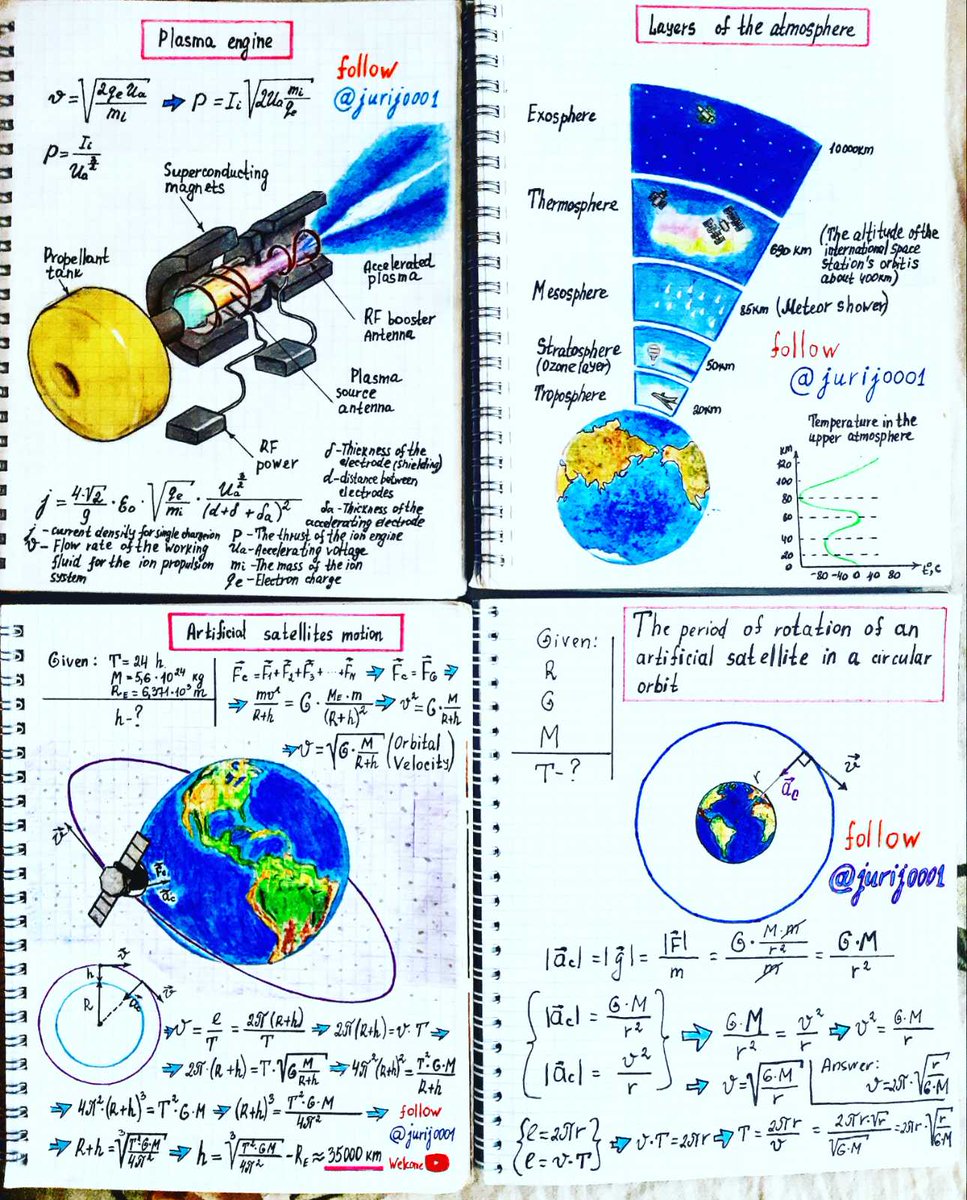 Plasma engine
follow
@jurij0001
v = √(2qeUa/mi) ⇒ P = Ii √(2Ua mi/qe)
P = Ii/Ua^(3/2)
Superconducting
magnets
Propellant
tank
Accelerated
plasma
RF booster
Antenna
Plasma
source
antenna
RF
power
δ-Thickness of the
electrode (shielding)
d-distance between
electrodes
δa-Thickness of the
accelerating electrode
j = 4·√2/9 · ε0 · √(qe/mi) · Ua^(3/2)/(d+δ+δa)²
j - current density for single charge ion
v - Flow rate of the working
fluid for the ion propulsion
system
P - The thrust of the ion engine
Ua-Accelerating voltage
mi-The mass of the ion
qe-Electron charge
Layers of the atmosphere
Exosphere
10000km
Thermosphere
690 km
(The altitude of the
international space
station's orbit is
about 400km)
Mesosphere
85km (Meteor shower)
Stratosphere
(Ozone layer)
50km
Troposphere
20km
follow
@jurij0001
Temperature in the
upper atmosphere
km
120
100
80
60
40
20
-80 -40 0 40 80 t°,c
Artificial satellites motion
Given: T=24 h
M=5,6·10²⁴ kg
RE=6,371·10³ m
h-?
F⃗c=F⃗1+F⃗2+F⃗3+···+F⃗N ⇒ F⃗c=F⃗G ⇒
⇒ mv²/(R+h) = G · ME·m/(R+h)² ⇒ v²=G·M/(R+h)
⇒ v=√(G·M/(R+h)) (Orbital
Velocity)
v⃗
F⃗G
a⃗c
v⃗
h
R
a⃗c
v⃗
⇒ v = l/T = 2π(R+h)/T ⇒ 2π(R+h)=v·T ⇒
⇒ 2π·(R+h)=T·√(G M/(R+h)) ⇒ 4π²(R+h)²=T²·G·M/(R+h)
⇒ 4π²·(R+h)³=T²·G·M ⇒ (R+h)³=T²·G·M/4π² ⇒
⇒ R+h=∛(T²G·M/4π²) ⇒ h=∛(T²·GM/4π²) -RE≈35000 km
follow
@jurij0001
Welcome
The period of rotation of an
artificial satellite in a circular
orbit
Given:
R
G
M
T-?
r
a⃗c
v⃗
follow
@jurij0001
|a⃗c|=|g⃗|=|F⃗|/m = (G·M·m/r²)/m = G·M/r²
|a⃗c| = G·M/r²
|a⃗c| = v²/r
⇒ G·M/r² = v²/r ⇒ v²=G·M/r
⇒ v=√(G·M/r)
Answer:
v=2π·√(r/G·M)
{l=2πr
l=v·T} ⇒ v·T=2πr ⇒ T=2πr/v = 2πr·√r/√(G·M) =2πr·√(r/G·M)